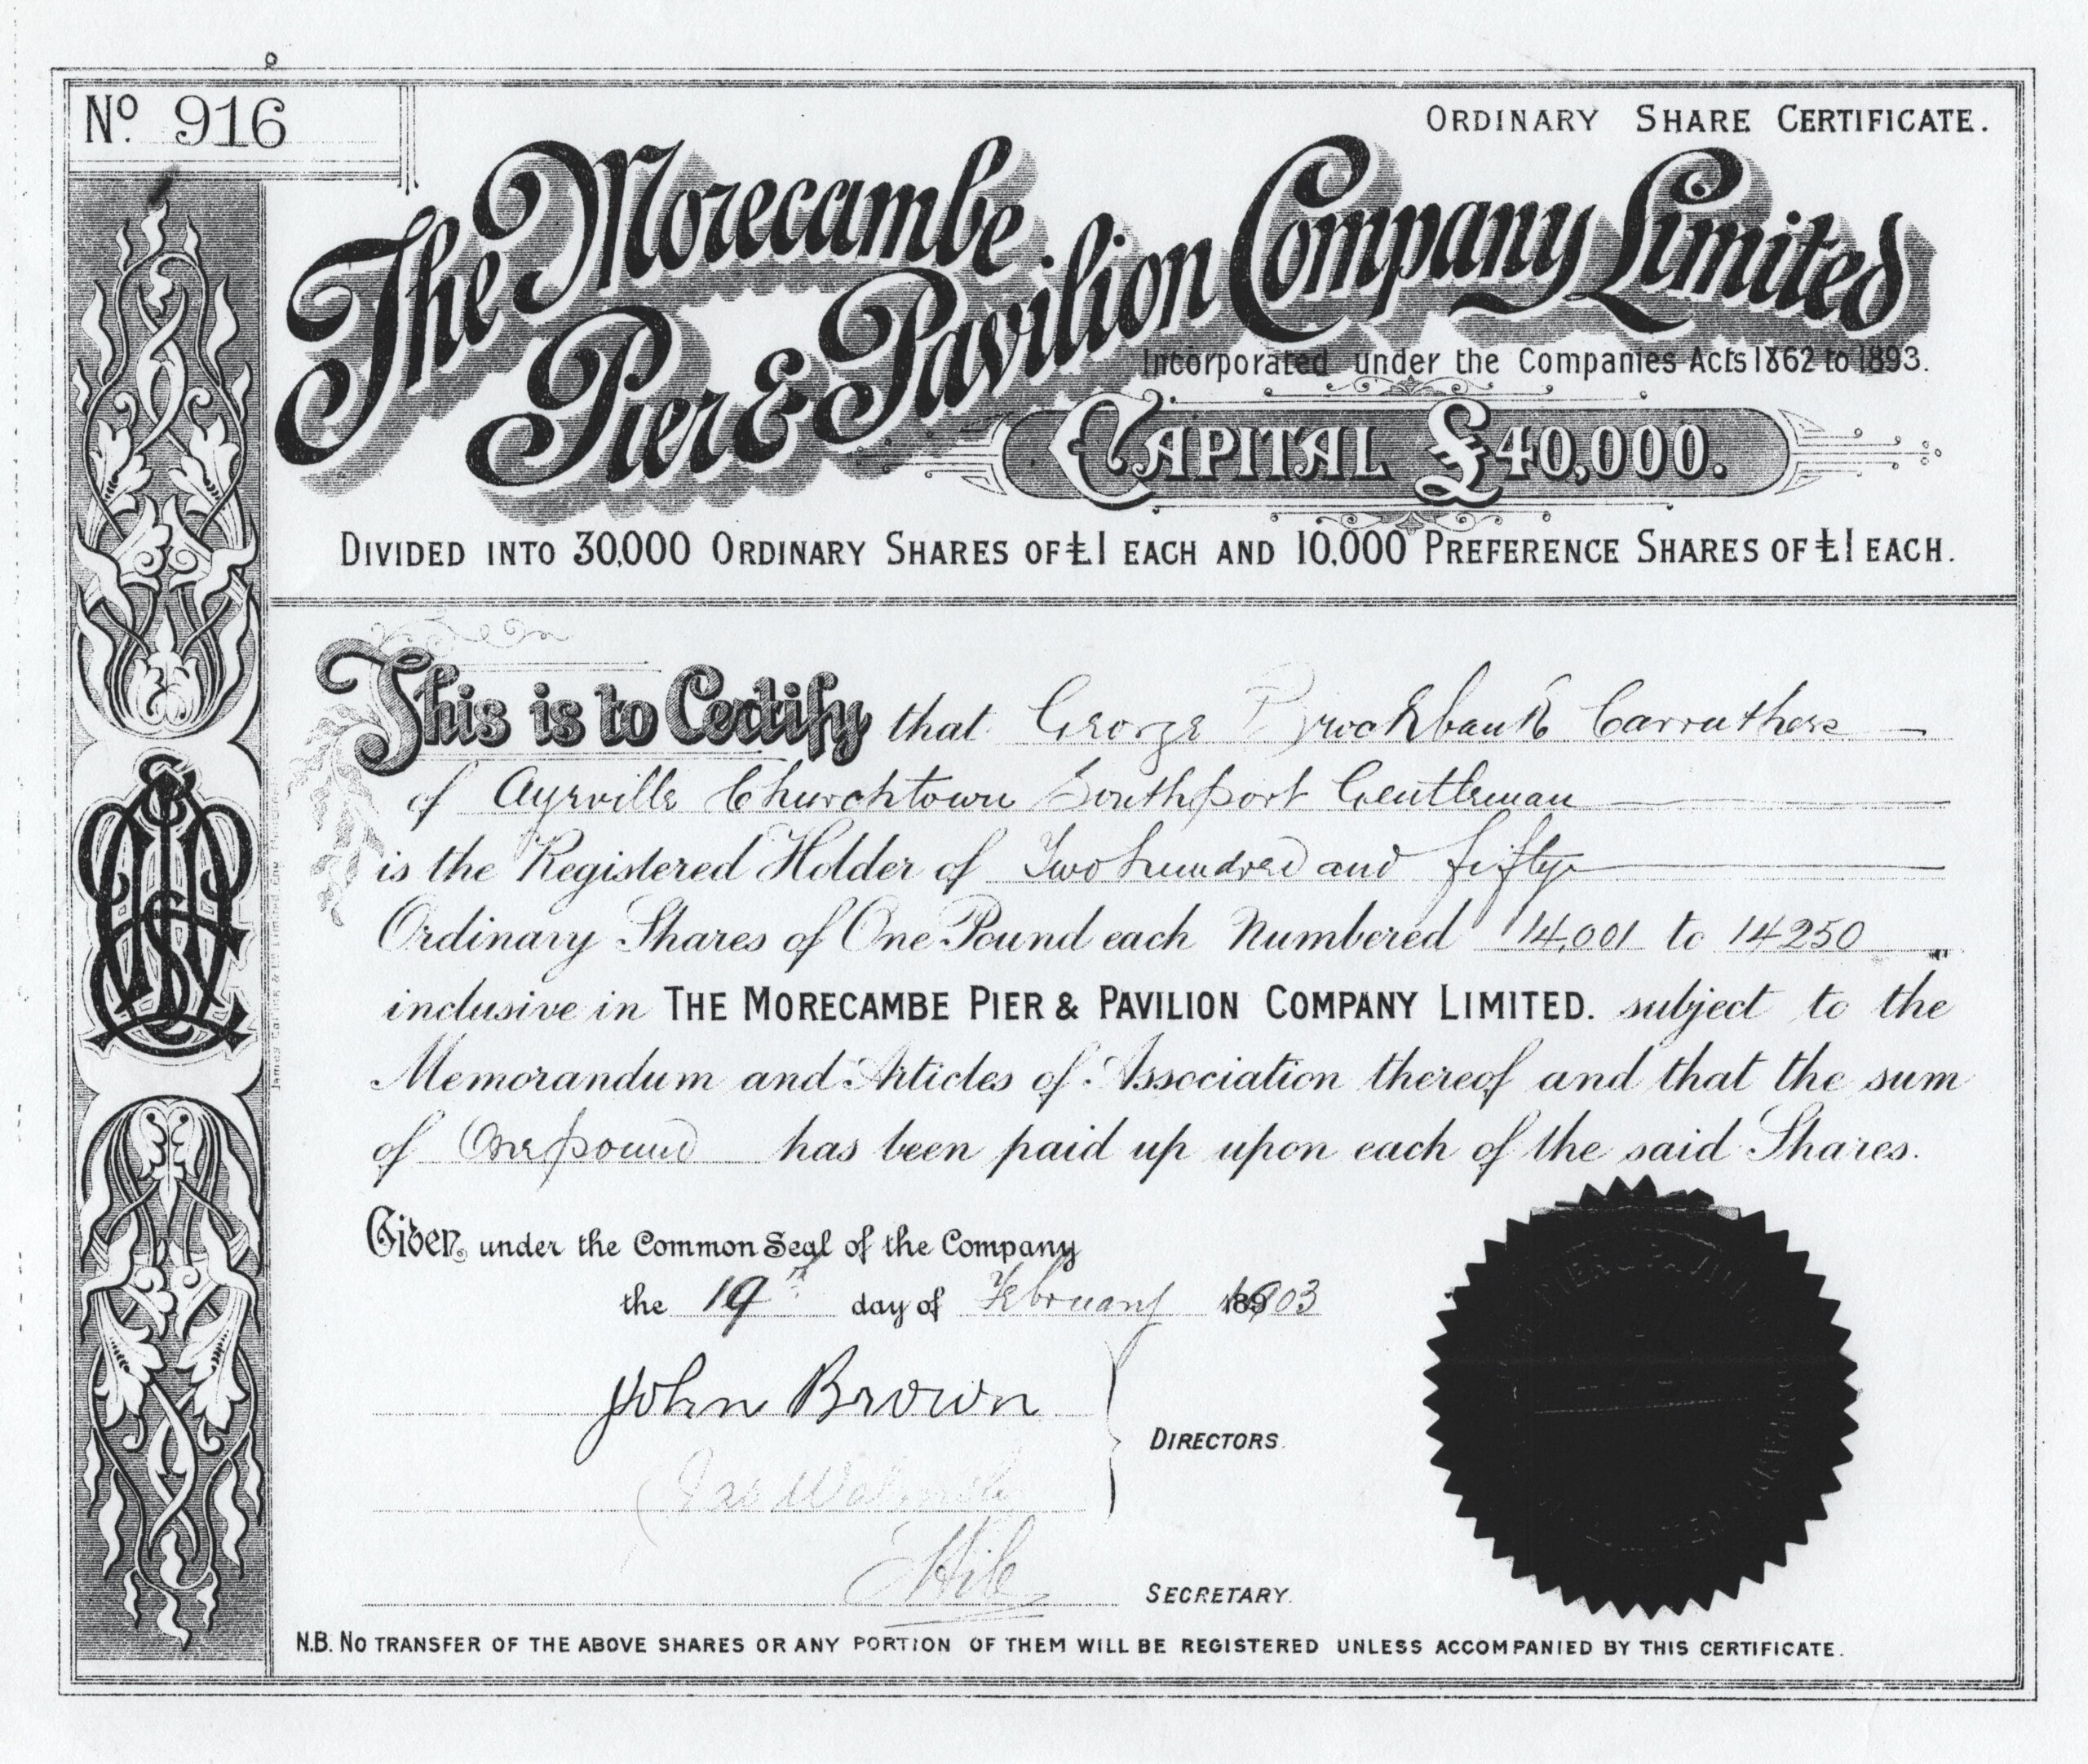 No. 916
ORDINARY SHARE CERTIFICATE.
The Morecambe
Pier & Pavilion Company Limited
Incorporated under the Companies Acts 1862 to 1893.
CAPITAL £40,000.
DIVIDED INTO 30,000 ORDINARY SHARES OF £1 EACH AND 10,000 PREFERENCE SHARES OF £1 EACH.
This is to Certify that George Brockbank Carruthers
of Ayrville Churchtown Southport Gentleman
is the Registered Holder of Two hundred and fifty
Ordinary Shares of One Pound each Numbered 14,001 to 14250
inclusive in THE MORECAMBE PIER & PAVILION COMPANY LIMITED. subject to the
Memorandum and Articles of Association thereof and that the sum
of One pound has been paid up upon each of the said Shares.
Given under the Common Seal of the Company
the 19th day of February 1903
John Brown
DIRECTORS.
SECRETARY.
N.B. NO TRANSFER OF THE ABOVE SHARES OR ANY PORTION OF THEM WILL BE REGISTERED UNLESS ACCOMPANIED BY THIS CERTIFICATE.